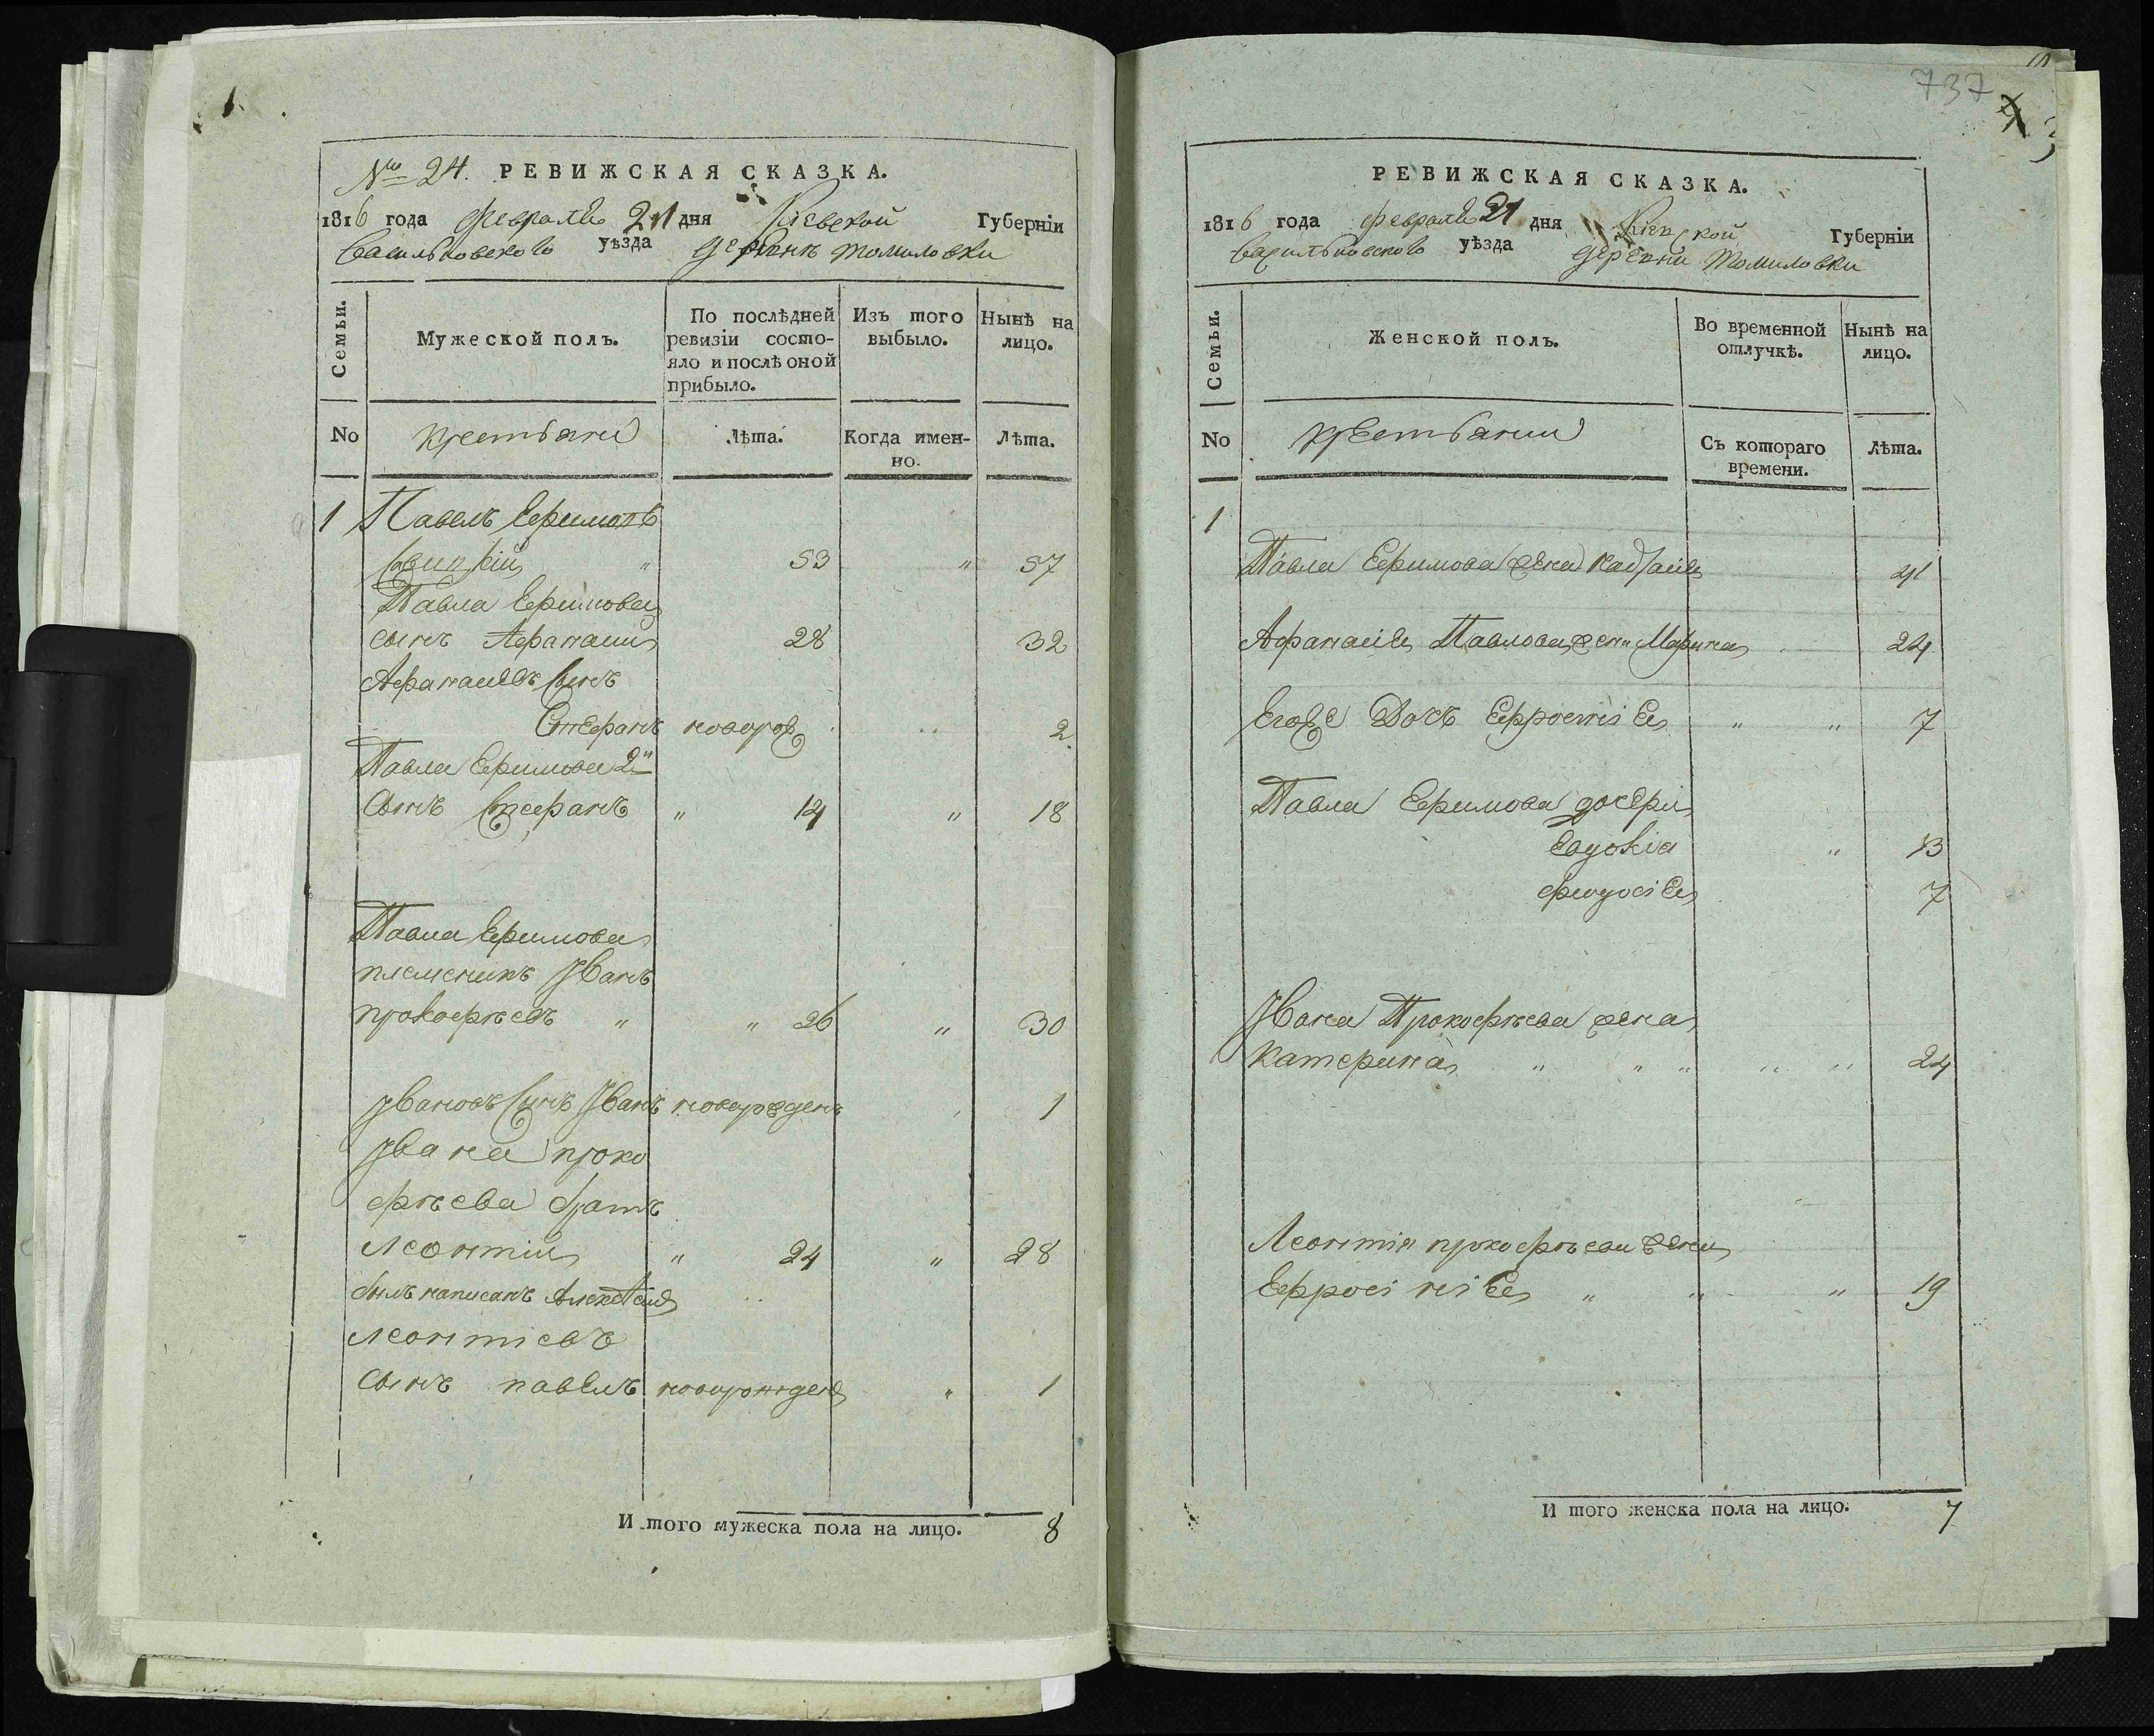 № 24. РЕВИЖСКАЯ СКАЗКА.
1816 года февраля 21 дня Киевской Губерніи
Васильковского уѣзда деревни Томиловки
Семьи.
Мужеской полъ.
По послѣдней ревизіи состо-
яло и послѣ оной
прибыло.
Изъ того
выбыло.
Нынѣ на
лицо.
No
крестьяни
Лѣта.
Когда имен-
но.
Лѣта.
1 Павелъ Ефимовъ
" 53 " 57
Павла Ефимова
сынъ Афанасий 28 32
Афанасіевъ сынъ
Стефанъ новорож 2
Павла Ефимова 2й
сынъ Стефанъ " 14 " 18
Павла Ефимова
племеникъ Иванъ
Прокофьевъ " " 26 " 30
Ивановъ сынъ Иванъ новорожденъ 1
Ивана проко
фьева братъ
Леонтий " 24 " 28
былъ написанъ Алексѣемъ
Леонтіевъ
сынъ павелъ новорожденъ " 1
И того мужеска пола на лицо. 8
737
РЕВИЖСКАЯ СКАЗКА.
1816 года февраля 21 дня Киевской Губерніи
Васильковского уѣзда деревни Томиловки
Семьи.
Женской полъ.
Во временной
отлучкѣ.
Нынѣ на
лицо.
No
крестьянии
Съ котораго
времени.
Лѣта.
1
Павла Ефимова жена 41
Афанасія Павлова жена Марина 24
Его же дочь Ефросинія " " 7
Павла Ефимова дочери
Евдокія " 13
Феодосія 7
Ивана Прокофьева жена
Катерина " " " " " 24
Леонтія прокофьева жена
Ефросинія " " " 19
И того женска пола на лицо. 7